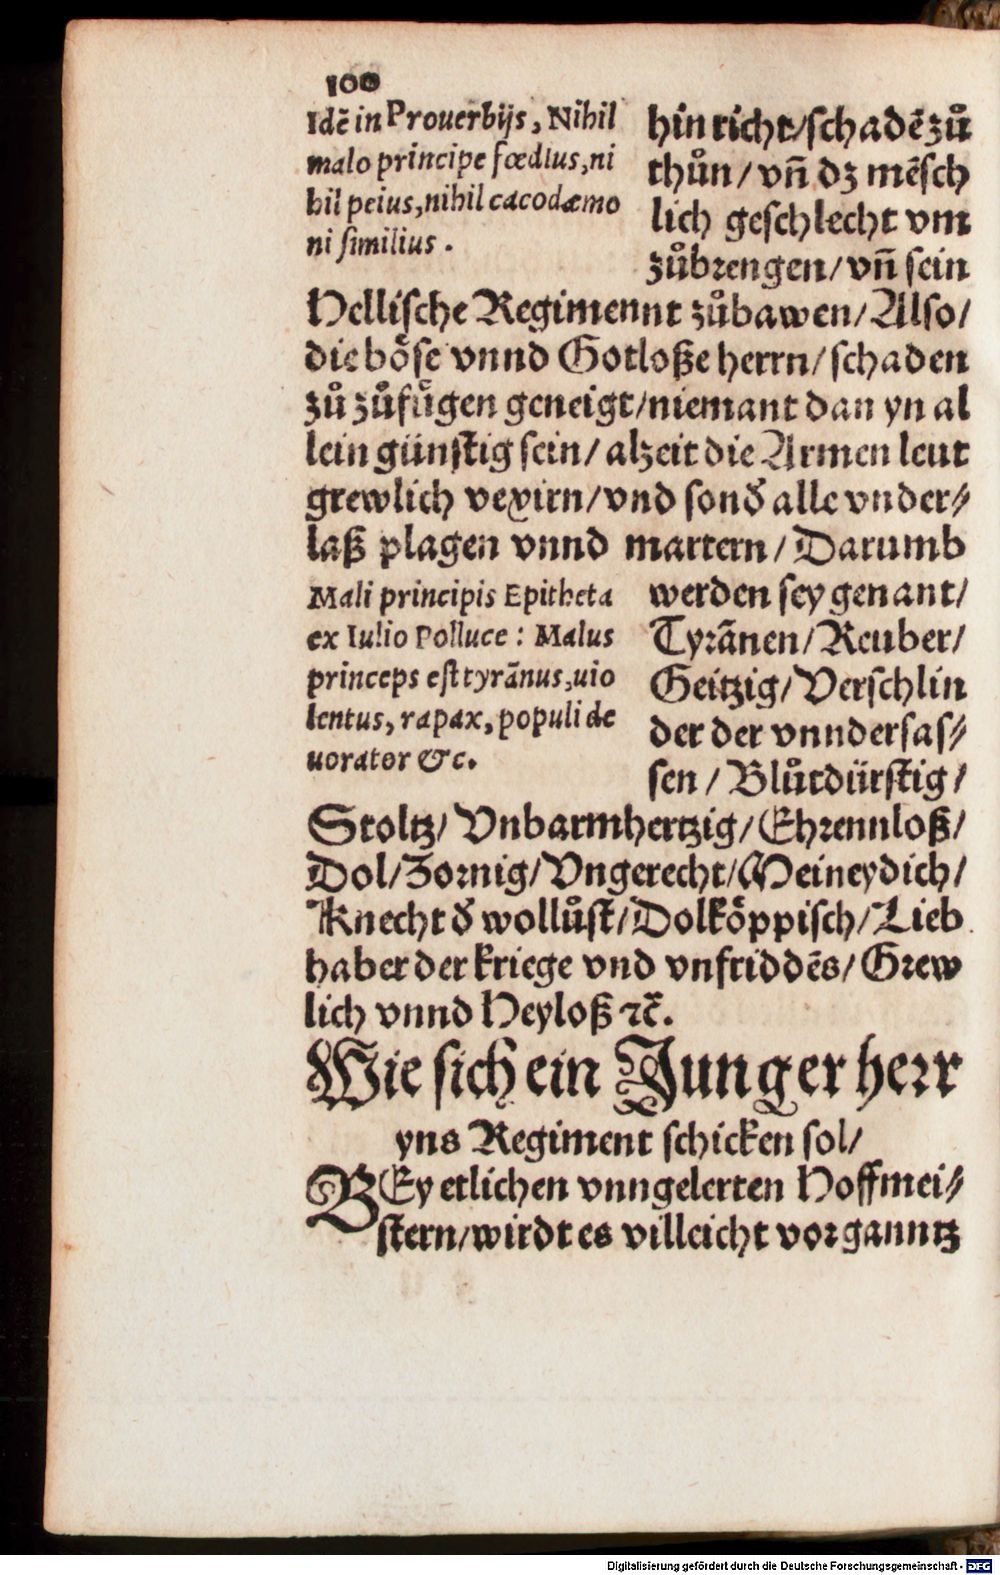 100
Idē in Prouerbijs, Nihil
malo principe fœdius, ni
hil peius, nihil cacodæmo
ni similius.
hin richt/schadē zů
thůn/vñ dz mēsch
lich geschlecht vm
zůbrengen/vñ sein
Hellische Regimennt zůbawen/Also/
die bőse vnnd Gotloße herrn/schaden
zů zůfügen geneigt/niemant dan yn al
lein günstig sein/alzeit die Armen leut
grewlich vexirn/vnd sonđ alle vnder⸗
laß plagen vnnd martern/Darumb
Mali principis Epitheta
ex Iulio Polluce: Malus
princeps est tyrãnus, uio
lentus, rapax, populi de
uorator &c.
werden sey genant/
Tyrãnen/Reuber/
Geitzig/Verschlin
der der vnndersas⸗
sen/Blůtdürstig/
Stoltz/Vnbarmhertzig/Ehrennloß/
Dol/Zornig/Vngerecht/Meineydich/
Knecht đ wollůst/Dolkőppisch/Lieb
haber der kriege vnd vnfriddēs/Grew
lich vnnd Heyloß ꝛc̄.
Wie sich ein Junger herr
yns Regiment schicken sol/
BEy etlichen vnngelerten Hoffmei⸗
stern/wirdt es villeicht vor ganntz
Digitalisierung gefördert durch die Deutsche Forschungsgemeinschaft - DFG